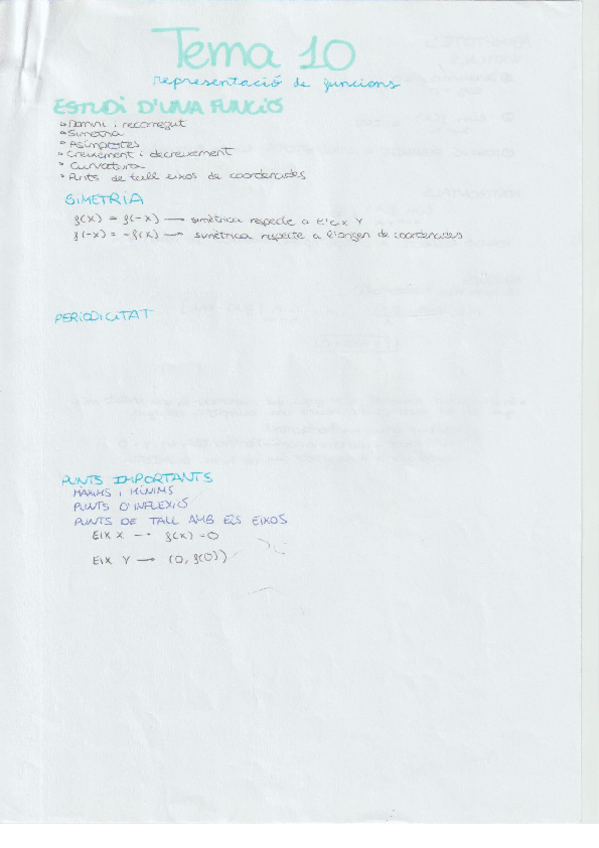 Tema 10
representació de funcions
ESTUDI D'UNA FUNCIÓ
• Domini i recorregut
• Simetria
• Asímptotes
• Creixement i decreixement
• Curvatura
• Punts de tall eixos de coordenades
SIMETRIA
f(x) = f(-x) → simètrica respecte a l'eix Y
f(-x) = -f(x) → simètrica respecte a l'origen de coordenades
PERIODICITAT
PUNTS IMPORTANTS
MÀXIMS i MÍNIMS
PUNTS D'INFLEXIÓ
PUNTS DE TALL AMB ELS EIXOS
EIX X → f(x) = 0
EIX Y → (0, f(0))